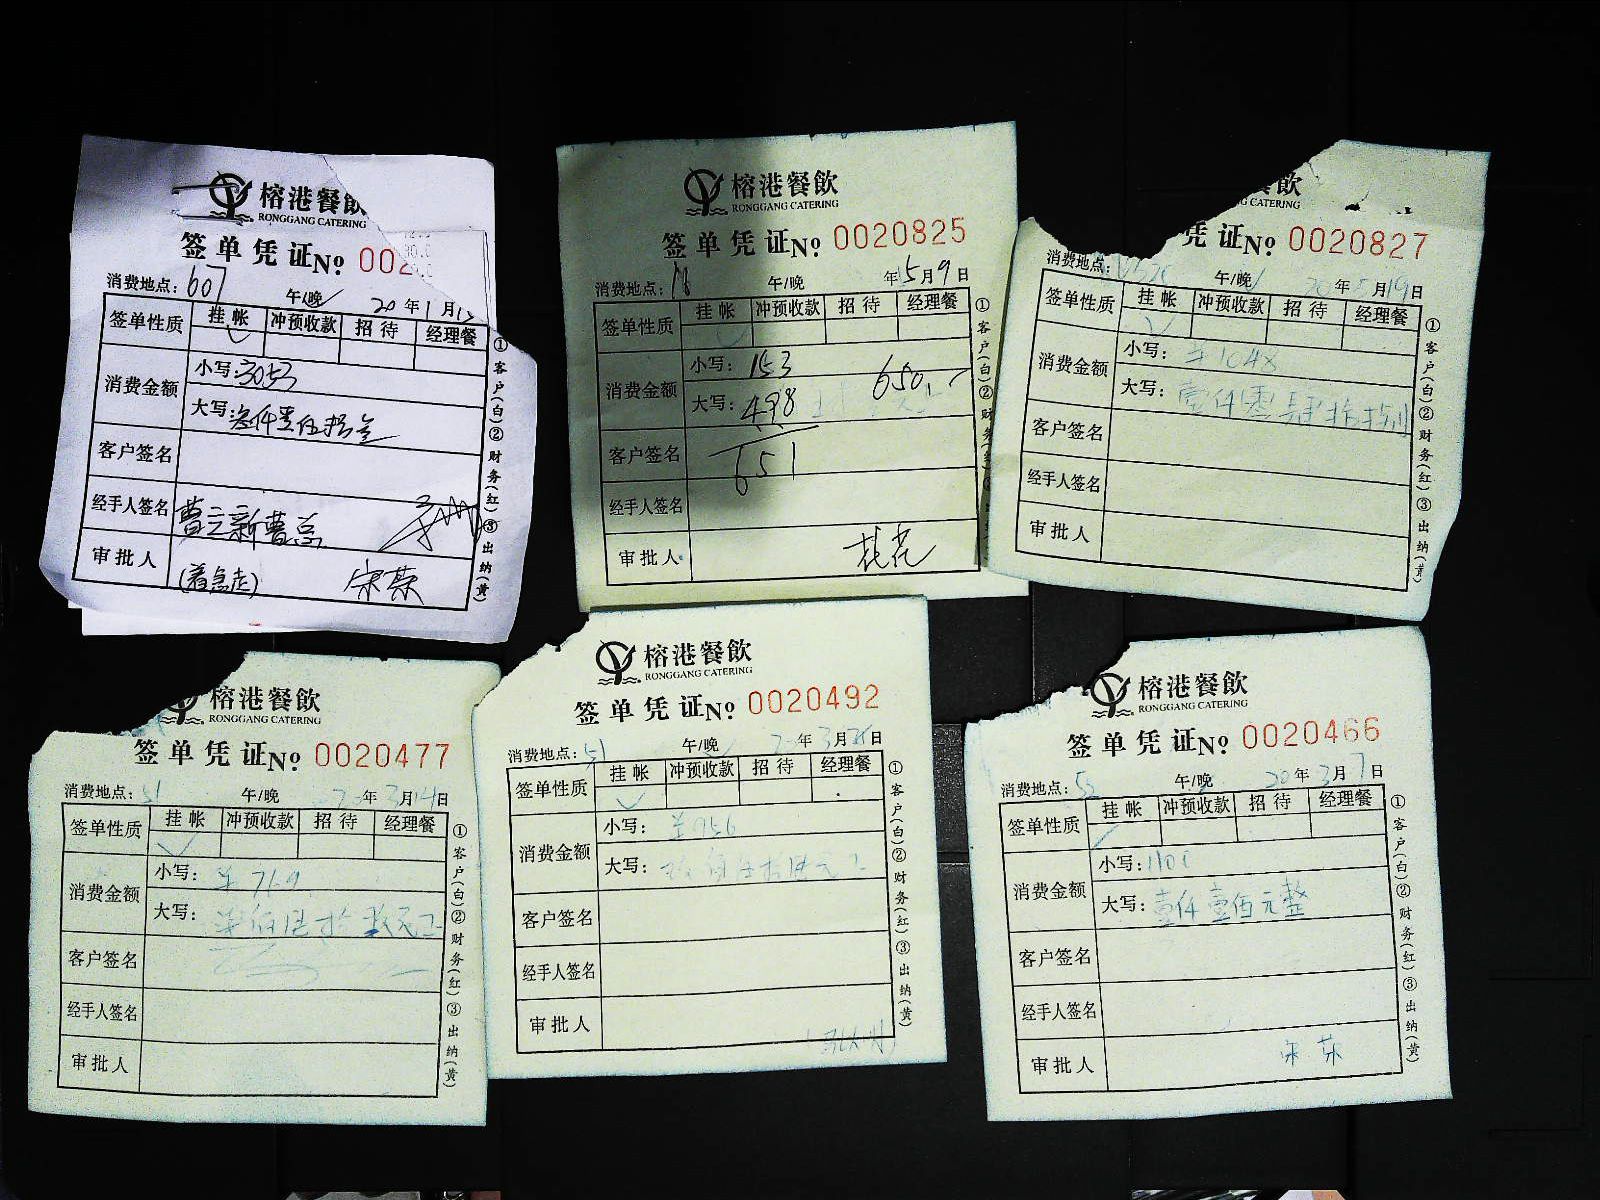 榕港餐飲
RONGGANG CATERING
签单凭证 No. 002
消费地点: 607 午/晚 20年1月12
签单性质 挂帐 冲预收款 招待 经理餐
消费金额 小写: 3053
大写:
客户签名
经手人签名 曹立新曹总
审批人 (着急走) 宋荣
①客户(白)②财务(红)③出纳(黄)
榕港餐飲
RONGGANG CATERING
签单凭证 No. 0020825
消费地点: 午/晚 年5月9日
签单性质 挂帐 冲预收款 招待 经理餐
消费金额 小写: 153 650.-
大写: 498
客户签名 651
经手人签名
审批人
①客户(白)②财
飲
NG CATERING
凭证 No. 0020827
消费地点: 午/晚 20年5月19日
签单性质 挂帐 冲预收款 招待 经理餐
消费金额 小写: ¥1048
大写: 壹仟零肆拾捌
客户签名
经手人签名
审批人
①客户(白)②财务(红)③出纳(黄)
榕港餐飲
RONGGANG CATERING
签单凭证 No. 0020477
消费地点: 51 午/晚 年3月14日
签单性质 挂帐 冲预收款 招待 经理餐
消费金额 小写: ¥769
大写:
客户签名
经手人签名
审批人
①客户(白)②财务(红)③出纳(黄)
榕港餐飲
RONGGANG CATERING
签单凭证 No. 0020492
消费地点: 51 午/晚 20年3月日
签单性质 挂帐 冲预收款 招待 经理餐
消费金额 小写: ¥956
大写:
客户签名
经手人签名
审批人
①客户(白)②财务(红)③出纳(黄)
榕港餐飲
RONGGANG CATERING
签单凭证 No. 0020466
消费地点: 午/晚 20年3月7日
签单性质 挂帐 冲预收款 招待 经理餐
消费金额 小写:
大写: 壹仟壹佰元整
客户签名
经手人签名
审批人 宋荣
①客户(白)②财务(红)③出纳(黄)